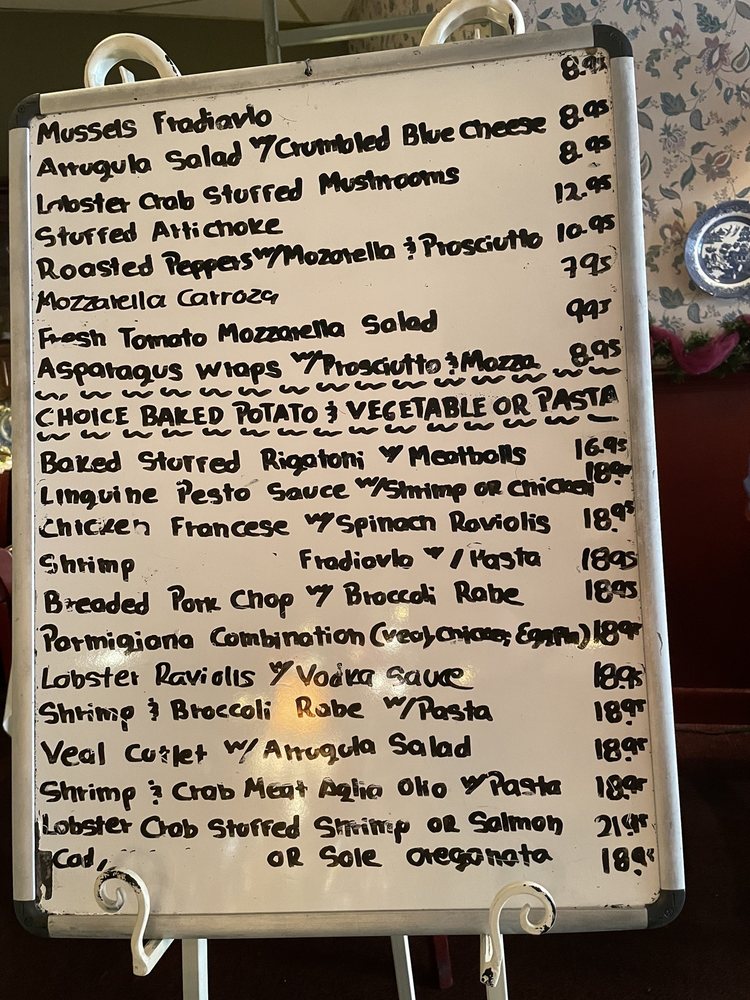 Mussels Fradiavlo 8.95
Arrugula Salad w/Crumbled Blue Cheese 8.95
Lobster Crab Stuffed Mushrooms 8.95
Stuffed Artichoke 12.95
Roasted Peppers w/Mozarella & Prosciutto 10.95
Mozzarella Carroza 795
Fresh Tomato Mozzarella Salad 995
Asparagus wraps w/Prosciutto & Mozza 8.95
CHOICE BAKED POTATO & VEGETABLE OR PASTA
Baked Stuffed Rigatoni w/ Meatballs 16.95
Linguine Pesto Sauce w/Shrimp OR Chicken 18.95
Chicken Francese w/Spinach Raviolis 18.95
Shrimp Fradiavlo w/Pasta 1895
Breaded Pork Chop w/ Broccoli Rabe 1895
Parmigiana Combination (Veal, Chicken, Eggpln) 18.95
Lobster Raviolis w/ Vodka Sauce 18.95
Shrimp & Broccoli Rabe w/Pasta 18.95
Veal Cutlet w/ Arrugula Salad 18.95
Shrimp & Crab Meat Aglia Olio w/ Pasta 18.95
Lobster Crab Stuffed Shrimp OR Salmon 21.95
Cod, OR Sole Oreganata 18.95